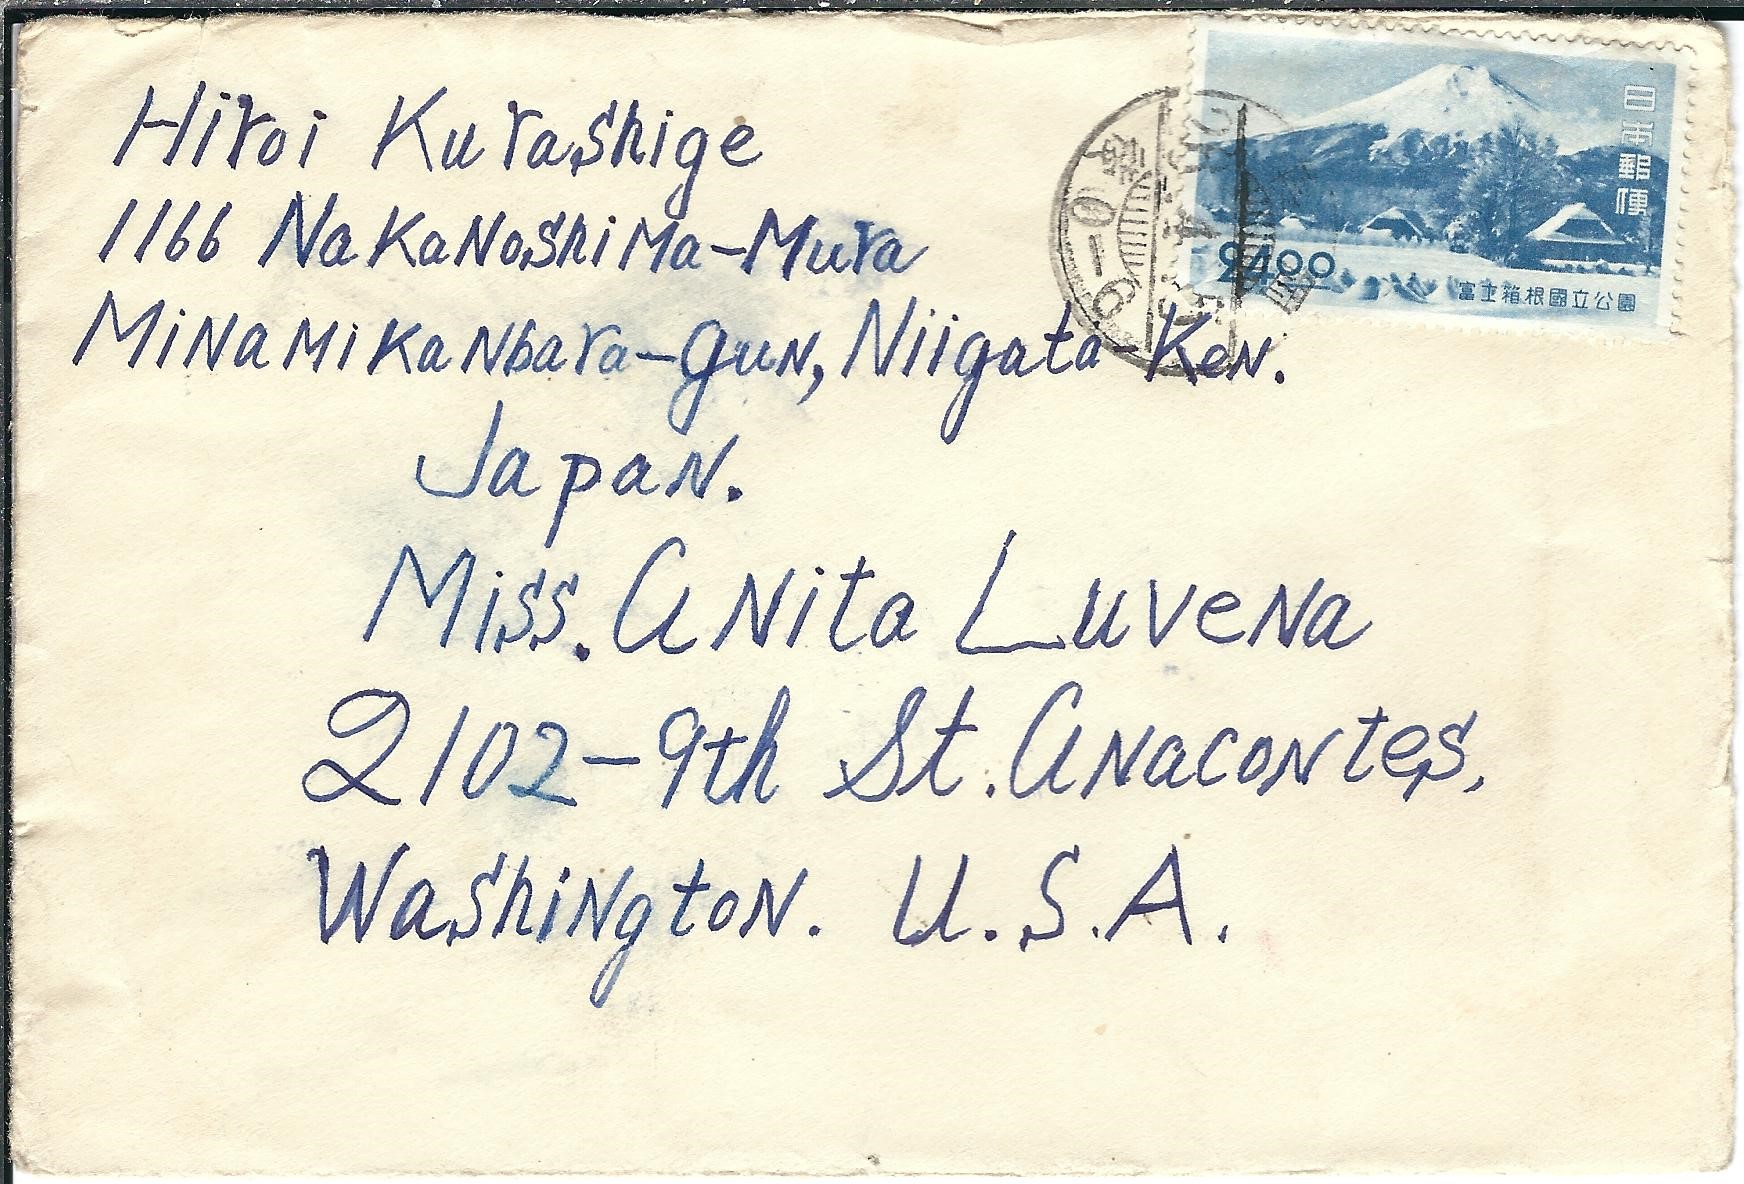 Hiroi Kurashige
1166 Nakanoshima-Mura
Minamikanbara-gun, Niigata-Ken.
Japan.
Miss. Anita Luvena
2102-9th St. Anacontes,
Washington. U.S.A.
日本郵便
24.00
富士箱根國立公園